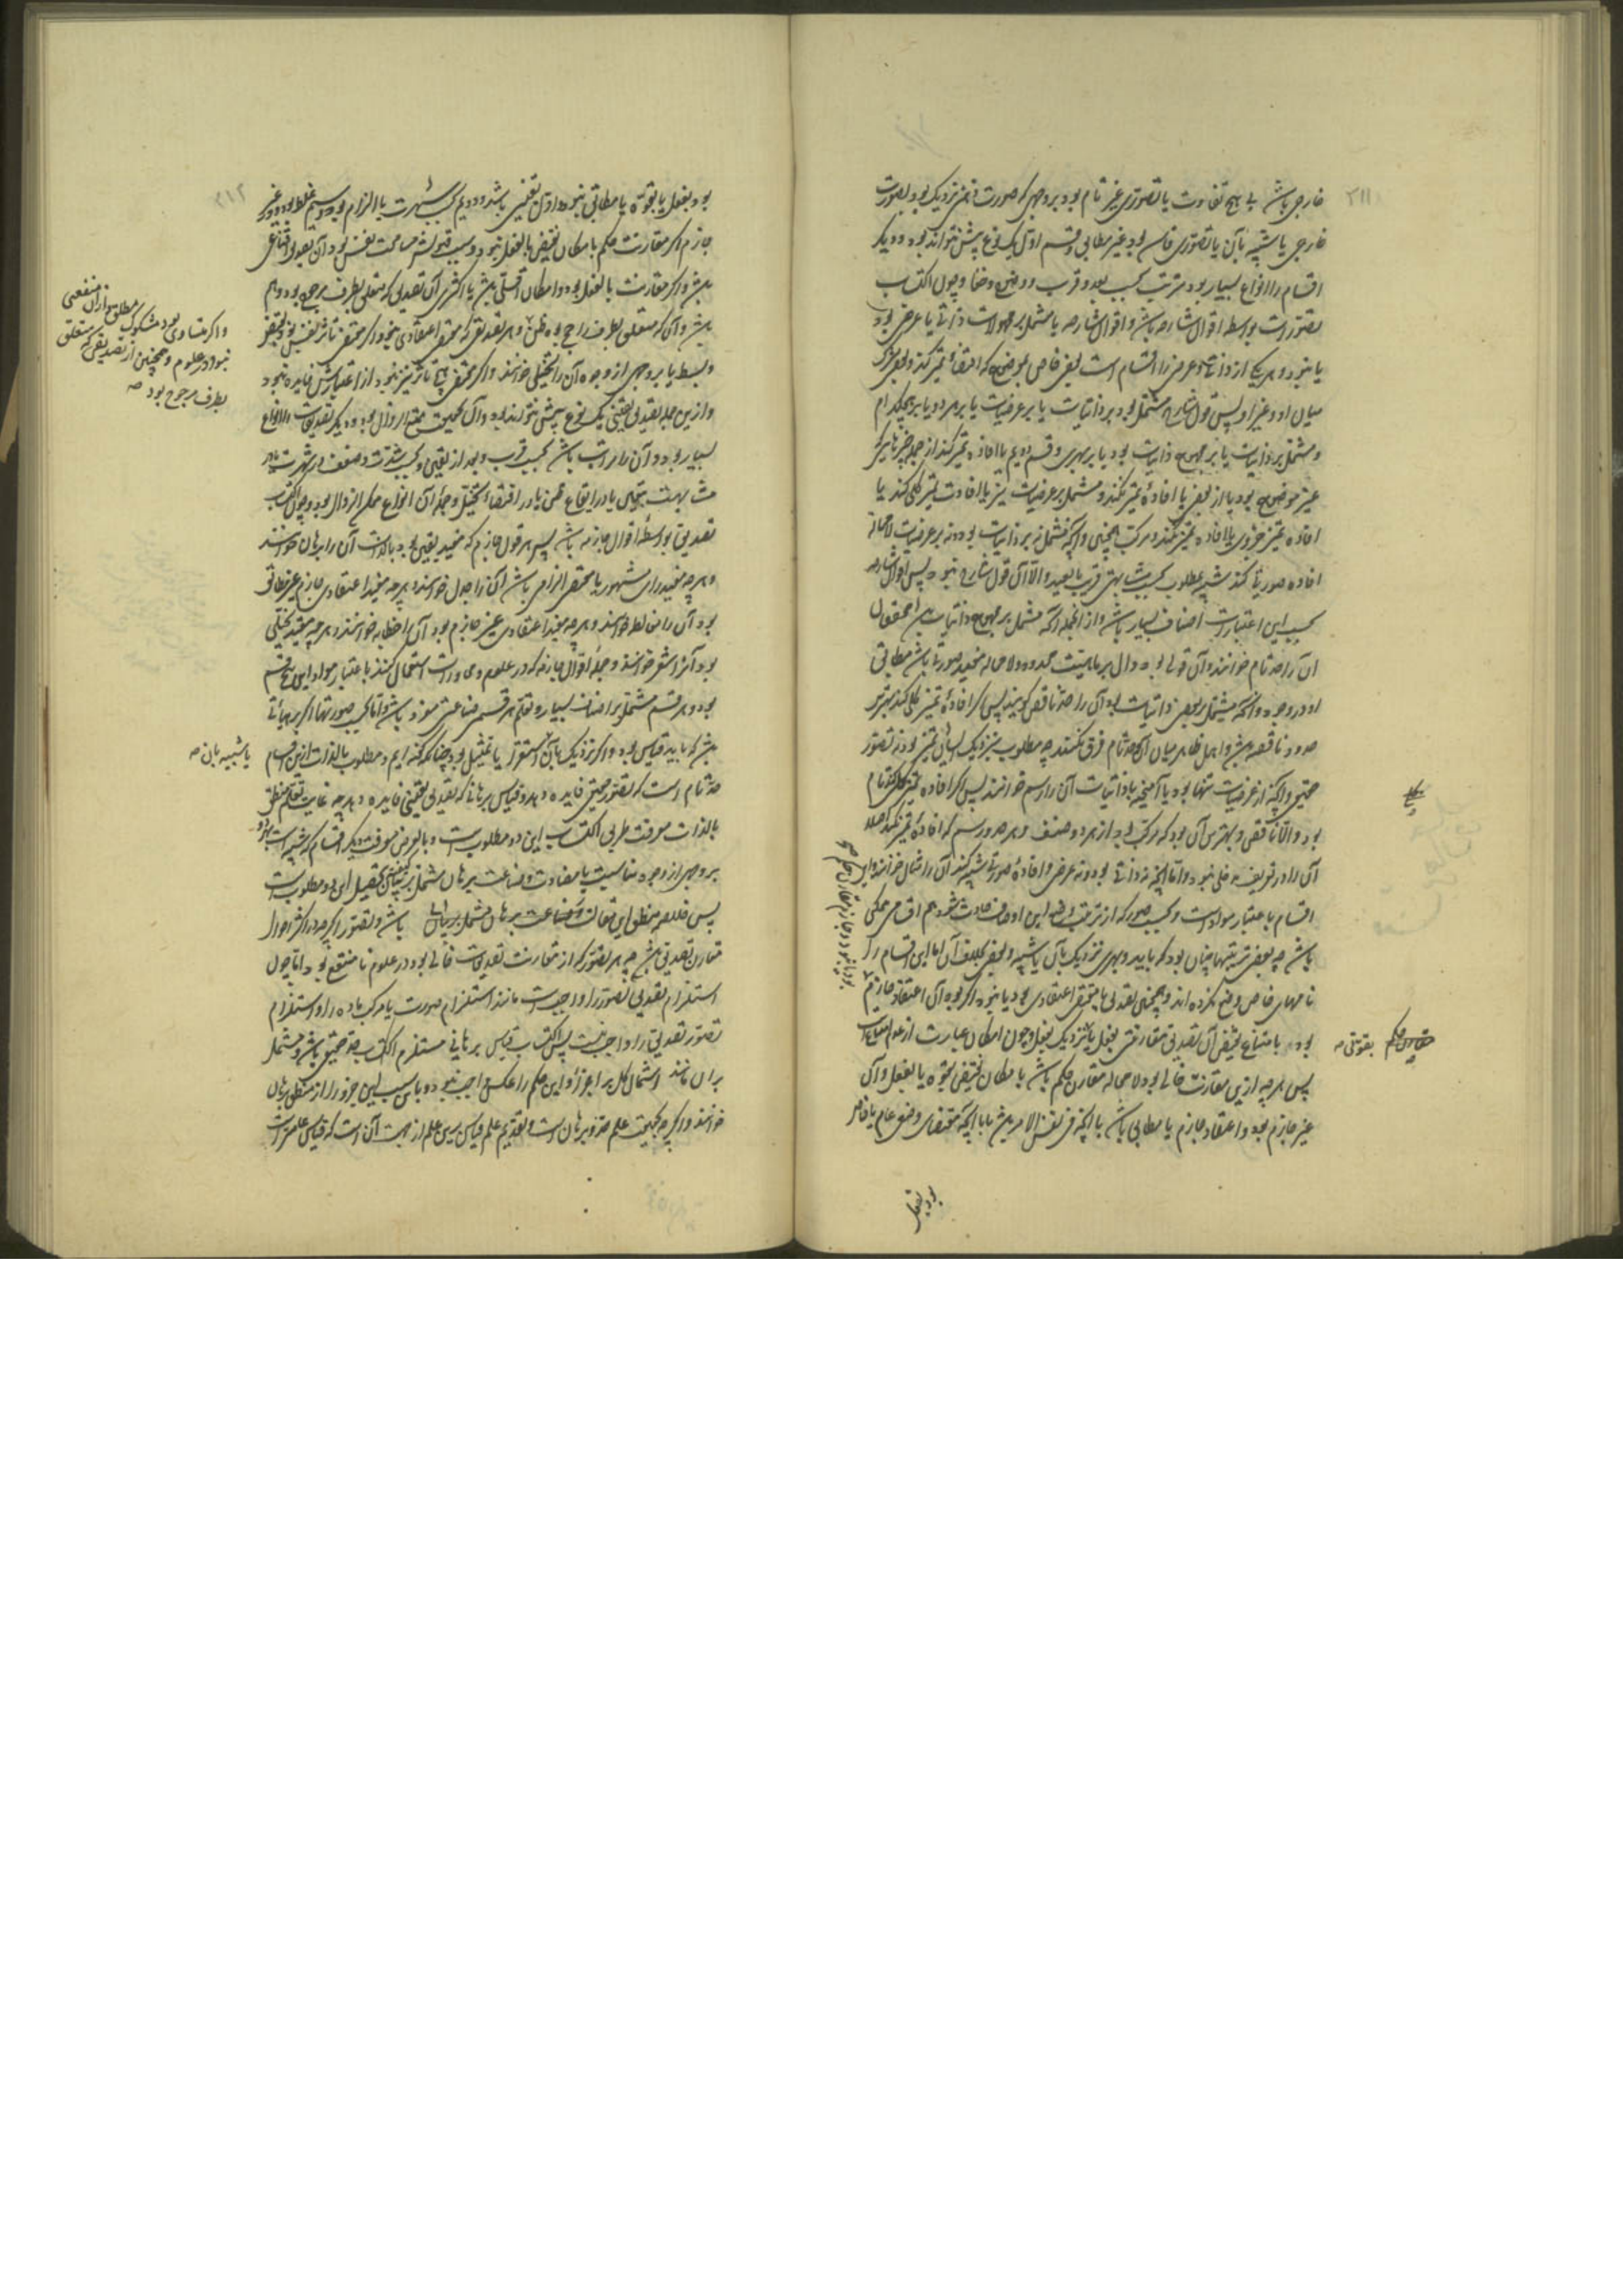 خارجی باشد بی هیچ تفاوت یا تصوری غیر تام بود بر وجهی که صورت ذهنی نزدیک بود بصورت
خارجی یا شبیه بآن یا تصوری فاسد بود غیر مطابق و قسم اول یک نوع بیش نتواند بود و دیگر
اقسام را انواع بسیار بود مترتب بحسب بعد و قرب و وضوح و خفا و چون اکتساب
تصورات بواسطه اقوال شارحه باشد و اقوال شارحه یا مشتمل بر محمولات ذاتی یا عرضی بود
یا نبود و هر یکی از ذاتی و عرضی را اقسام است بعضی خاص بموضوع که اقتضاء تمیز کند و بعضی مشترک
میان او و غیر او پس قول شارح مشتمل بود بر ذاتیات یا بر عرضیات یا بر هر دو یا بر هیچکدام
و مشتمل بر ذاتیات یا بر جمیع ذاتیات بود یا بر بعضی و قسم دویم یا افاده تمیز کند از جمله چیزهایی که
غیر موضوع بود یا از بعضی یا افادهٔ تمیز نکند و مشتمل بر عرضیات نیز یا افادت تمیز کلی کند یا
افاده تمیز جزوی یا افاده تمیز نکند و مرکب همچنین و آنچه مشتمل نه بر ذاتیات بود و نه بر عرضیات لامحاله
افاده صورتی کند شبیه بمطلوب بحسب مشابهتی قریب یا بعید و الا آن قول شارح نبود پس اقوال شارحه
بحسب این اعتبارات اصناف بسیار باشد و از آنجمله آنکه مشتمل بر جمیع ذاتیات بود
آن را حد تام خوانند و آن قولی بود دال بر ماهیت محدود و لامحاله مفید صورتی باشد مطابق
او در وجود و آنکه مشتمل بر بعضی ذاتیات بود آن را حد ناقص گویند پس اگر افادهٔ تمیز کلی کند بهترین
حدود ناقصه باشد و اهل ظاهر میان آن و حد تام فرق نکنند چه مطلوب بنزدیک ایشان تمیز بود نه تصور
حقیقی و آنچه از عرضیات تنها بود یا آمیخته با ذاتیات آن را رسم خوانند پس اگر افاده تمیز کلی کند تام
بود و الا ناقص و بهترین آن بود که مرکب بود از هر دو صنف و هر حد و رسم که افادهٔ تمیز نکند اصلا
آن را در تعریف مدخلی نبود و اما آنچه نه ذاتی بود و نه عرضی و افادهٔ صورتی شبیه کند آن را مثال خوانند و این
اقسام باعتبار مواد است و بحسب صور که از ترتیب و این اوصاف حادث شود هم اقسامی ممکن
باشد چه بعضی ترتیبها چنان بود که باید و بعضی نزدیک بآن یا شبیه و بعضی بخلاف آن اما این اقسام را
نامهای خاص وضع نکرده‌اند و همچنین تصدیق یا مقتضی اعتقادی بود یا نبود و اگر بود آن اعتقاد جازم
بود
پس هر چه ازین مقارنت خالی بود لامحاله مقارن حکم باشد با مکان نقیض بقوه یا بفعل و آن
غیر جازم بود و اعتقاد جازم یا مطابق باشد با آنچه فی نفس الامر باشد یا با آنچه مقتضای وضعی عام یا خاص
بود بفعل
بود بفعل یا بقوت یا مطابق نبود و اول یقینی باشد و دویم بحسب شهرت یا الزام بود و سیم غلط بود و غیر
جازم اگر مقارنت حکم با مکان نقیض بالفعل نبود و سبب قبولش مسامحت نفس بود آن تصدیق اقناعی
باشد و اگر مقارنت بالفعل بود و امکان اقلی باشد یا اکثری آن تصدیق که متعلق بطرف مرجوح بود وهم
باشد و آن که متعلق بطرف راجح بود ظن و هر تصدیق که مقتضی اعتقادی نبود اگر مقتضی تاثر نفس بود بقبض
و بسط یا بر وجهی از وجوه آن را تخییلی خوانند و اگر مقتضی هیچ تاثر نیز نبود از اعتبارش فایده نبود
و ازین جمله تصدیق یقینی یک نوع بیش نتواند بود و آن ممتنع الزوال بود و دیگر تصدیقات را انواع
بسیار بود و آن را مراتب باشد بحسب قرب و بعد از یقین و بحسب شدت و ضعف در شهرت یا در
مشابهت بحق یا در ایقاع ظن یا در اقتضاء تخییل و جملهٔ آن انواع ممکن الزوال بود و چون اکتساب
تصدیق بواسطهٔ اقوال جازمه باشد پس هر قول جازم که مفید یقین بود بالذات آن را برهان خوانند
و هر چه مفید رای مشهور یا مقتضی الزامی باشد آن را جدل خوانند و هر چه مفید اعتقادی جازم غیر مطابق
بود آن را مغالطه خوانند و هر چه مفید اعتقادی غیر جازم بود آن را خطابه خوانند و هر چه مفید تخییلی
بود آن را شعر خوانند و جملهٔ اقوال جازمه که در علوم و محاورات استعمال کنند باعتبار مواد این پنج قسم
بود و هر قسم مشتمل بر اصناف بسیار و تعلم هر قسمی صناعتی مفرد باشد و اما بحسب صورتها اگر بر هیأتی
باشد که باید قیاس بود و اگر نزدیک بآن استقرا یا تمثیل بود چنانکه گفته‌ایم و مطلوب بالذات ازین اقسام
حد تام است که تصور حقیقی فایده دهد و قیاس برهانی که تصدیق یقینی فایده دهد چه غایت تعلم منطق
بالذات معرفت طریق اکتساب این دو مطلوبست و بالعرض معرفت دیگر اقسام که شبیه است بهر دو
بر وجهی از وجوه مناسبت یا مضادت و صناعت برهان مشتمل بر بیان تحصیل این دو مطلوبست
پس خلاصه منطق این مقالت و صناعت برهان مشتمل بر بیان باشد و تصور اگر چه در اکثر احوال
مقارن تصدیقی باشد چه هر تصور که از مقارنت تصدیقات خالی بود در علوم نامنتفع بود اما چون
استلزام تصدیق تصور را واجبست مانند استلزام صورت یا مرکب ماده را و استلزام
تصور تصدیق را واجب نیست پس اکتساب قیاس برهانی مستلزم اکتساب حد حقیقی باشد و مشتمل
بر آن مانند اشتمال کل بر اجزا و این حکم را عکس واجب نبود و باین سبب این جزو را از منطق برهان
خوانند و اگر چه بحقیقت علم حد و برهان است و تقدیم علم قیاس برین علم از جهت آن است که قیاس عامتر است
و اگر متساوی بود مشکوک مطلق و ازان منفعتی
نبود در علوم و همچنین از تصدیقی که متعلق
بطرف مرجوح بود صه
یا شبیه بان صه